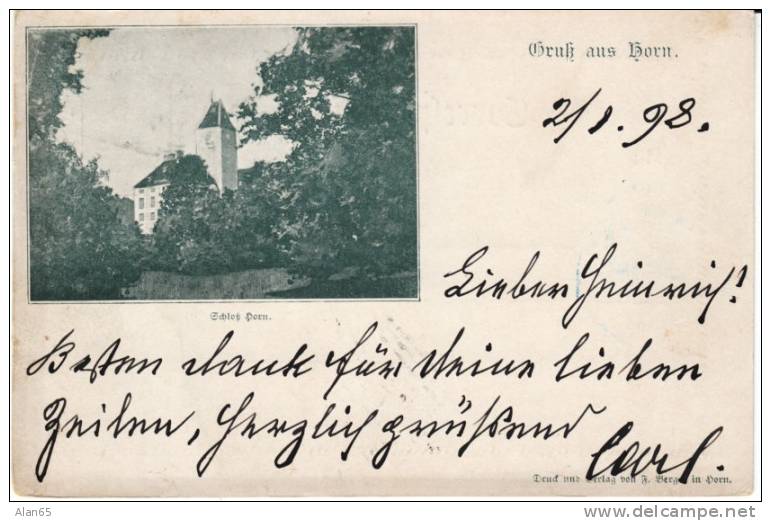 Gruß aus Horn.
2/8. 98.
Lieber Heinrich!
Schloß Horn.
Besten Dank für Deine lieben
Zeilen, herzlich grüßend
Carl.
Druck und Verlag von F. Berger in Horn.
Alan65
delcampe.net